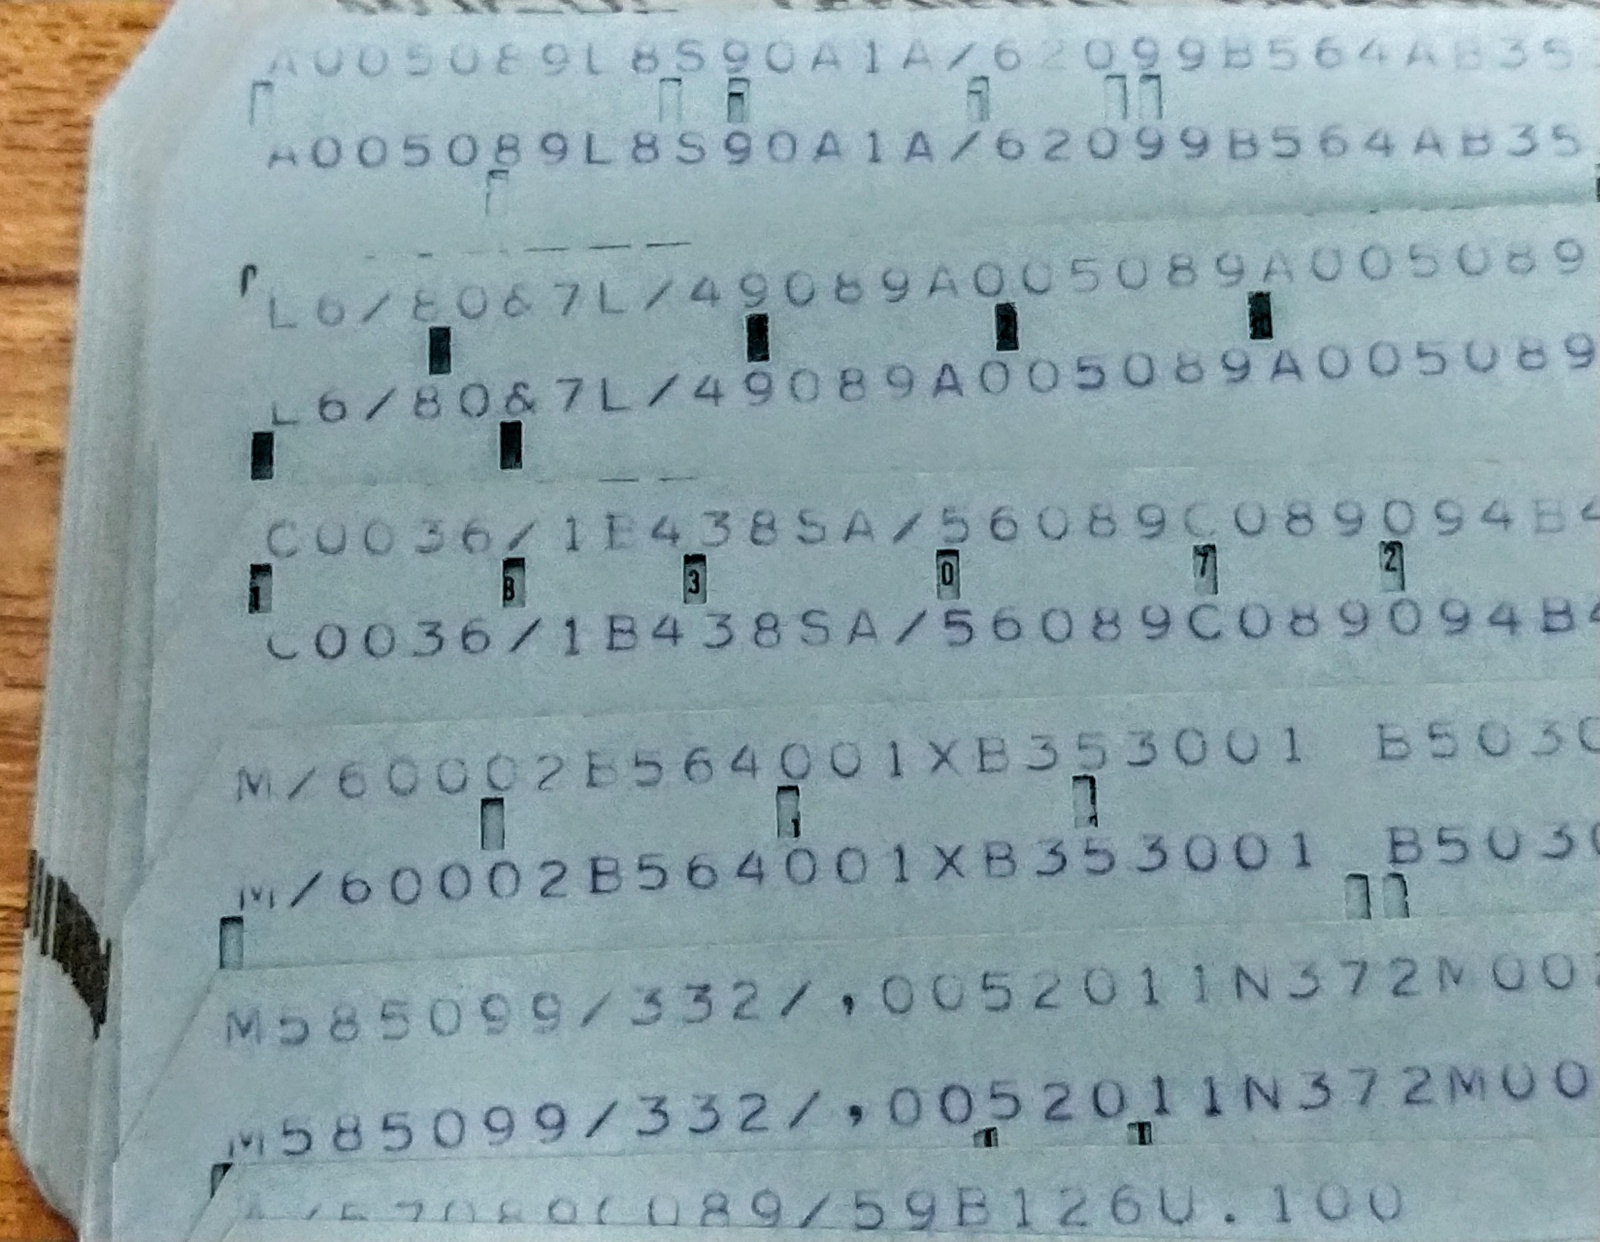 A005089L8S90A1A/62099B564AB35
A005089L8S90A1A/62099B564AB35
L6/80&7L/49089A005089A005089
L6/80&7L/49089A005089A005089
C0036/1B438SA/56089C089094B4
1 B 3 0 7 2
C0036/1B438SA/56089C089094B4
M/60002B564001XB353001 B5030
M/60002B564001XB353001 B5030
M585099/332/,0052011N372M00
M585099/332/,0052011N372M00
A/57089C089/59B126U.100